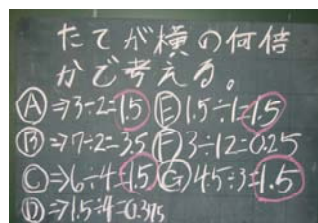 たてが横の何倍
かで考える。
Ⓐ⇒3÷2=1.5 Ⓔ1.5÷1=1.5
Ⓑ⇒7÷2=3.5 Ⓕ3÷12=0.25
Ⓒ⇒6÷4=1.5 Ⓖ4.5÷3=1.5
Ⓓ⇒1.5÷4=0.375